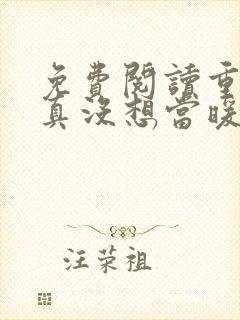 免費閱讀重
真沒想當暖
汪荣祖